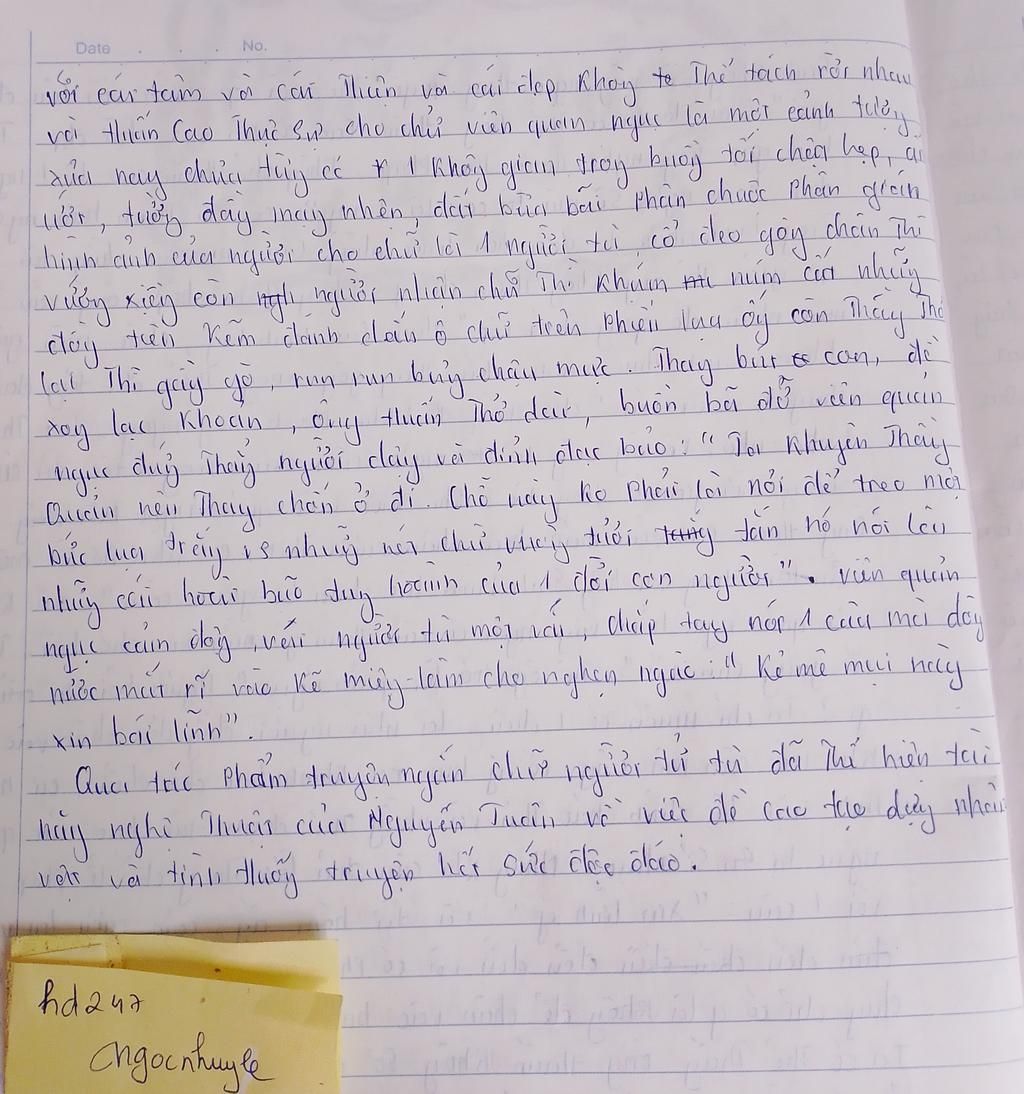 Date . . . No.
với cái tâm và cái Thiện và cái đẹp Không Thể tách rời nhau
và Huấn Cao Thực sự cho chữ viên quản ngục là một cảnh tượng
xưa nay chưa từng có + 1 không gian trong buồng tối chật hẹp, ẩm
ướt, tường đầy mạng nhện, đất bừa bãi phân chuột phân gián
hình ảnh của người cho chữ là 1 người tù cổ đeo gông chân Thì
vướng xiềng còn người nhận chữ Thì Khúm núm cất những
đồng tiền Kẽm đánh dấu ô chữ trên phiến lụa óng còn Thầy Thơ
lại Thì gầy gò, run run bưng chậu mực. Thay bút con, đề
xong lạc khoản, ông Huấn Thở dài, buồn bã đỡ viên quản
ngục đứng Thẳng người dậy và đĩnh đạc bảo: "Tôi Khuyên Thầy
Quản nên Thay chốn ở đi. Chỗ này ko phải là nơi để treo một
bức lụa trắng vs những nét chữ vuông tươi tắn nó nói lên
những cái hoài bão tung hoành của 1 đời con người". viên quản
ngục cảm động, vái người tù một vái, chắp tay nói 1 câu mà dòng
nước mắt rỉ vào kẽ miệng làm cho nghẹn ngào: "Kẻ mê muội này
xin bái lĩnh".
Qua tác phẩm truyện ngắn chữ người tử tù đã Thể hiện tài
năng nghệ Thuật của Nguyễn Tuân về việc đề cao tạo dựng nhân
vật và tình huống truyện hết sức độc đáo.
hd247
Ngocnhuyle